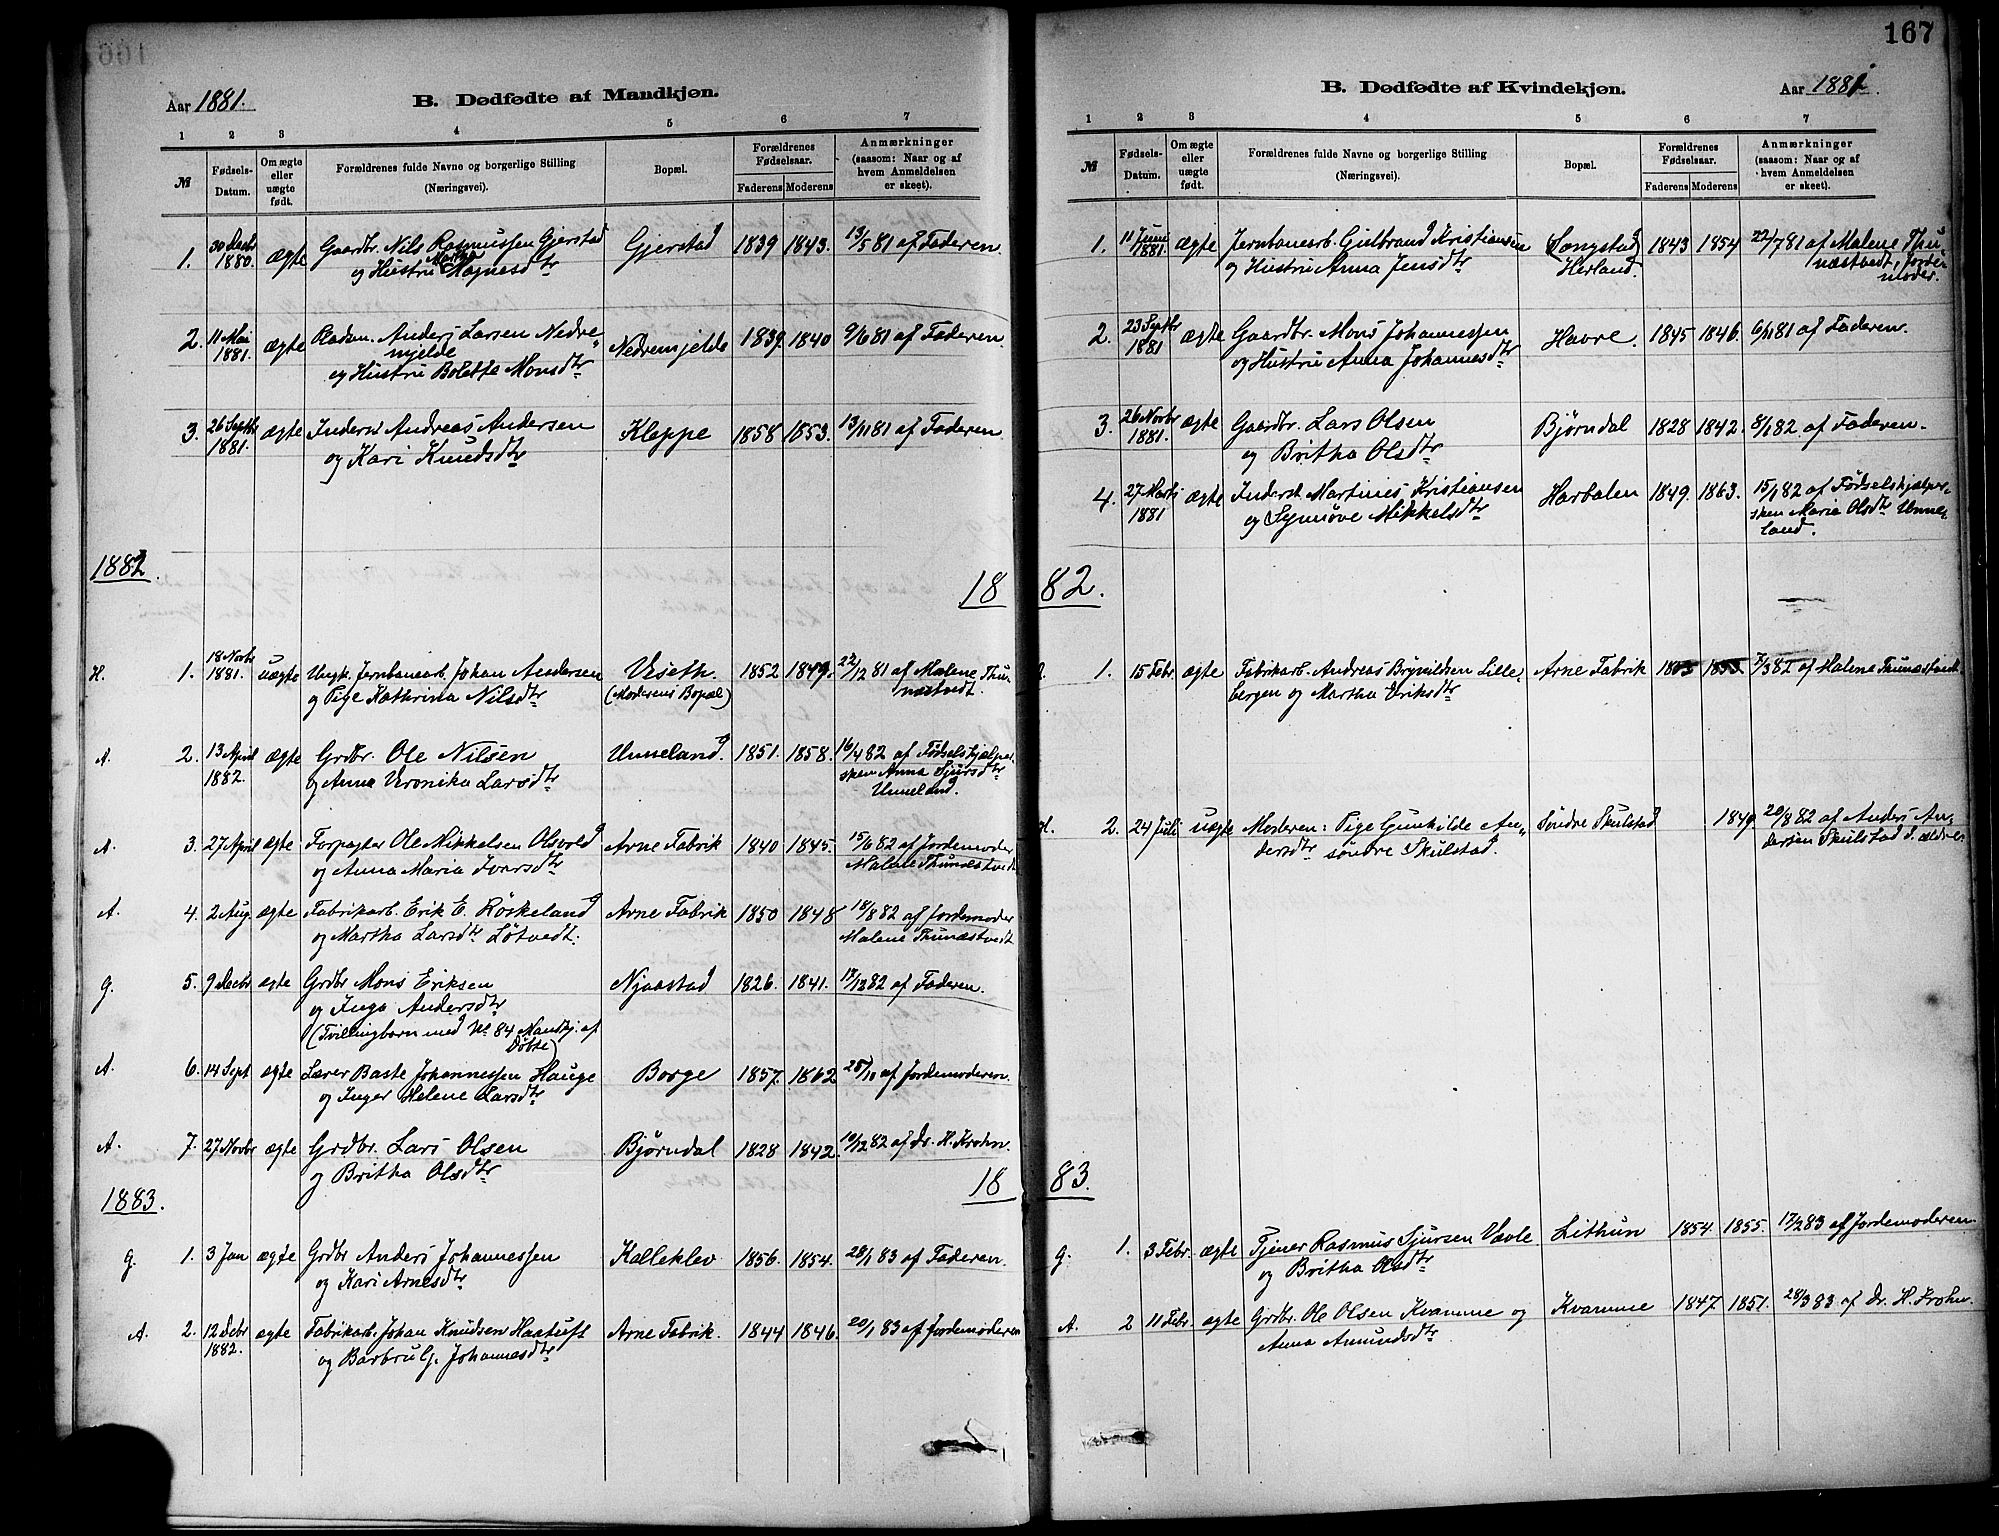 167
Aar 1881.
B. Dødfødte af Mandkjøn.
1 2 3 4 5 6 7
№
Fødsels-Datum.
Om ægte eller uægte født.
Forældrenes fulde Navne og borgerlige Stilling
(Næringsvei).
Bopæl.
Forældrenes Fødselsaar.
Faderens Moderens
Anmærkninger
(saasom: Naar og af
hvem Anmeldelsen
er skeet).
1. 30 Decbr 1880. ægte Gaardbr. Nils Rasmussen Gjerstad Gjerstad 1839 1843. 13/5 81 af Faderen.
og Hustru Martha Magnesdtr
2. 11 Mai 1881. ægte Pladsm. Anders Larsen Nedre- Nedremjelde 1839. 1840 9/6 81 af Faderen.
mjelde
og Hustru Bolette Monsdtr
3. 26 Septbr 1881. ægte Inderst Andreas Andersen Kleppe 1858 1853. 13/11 81 af Faderen
og Kari Knudsdtr
1882.
H. 1. 18 Novbr 1881. uægte Ungk. Jernbanearb. Johan Andersen Viseth. 1852 1849. 22/12 81 af Malene Thu-
og Pige Kathrina Nilsdtr (Moderens Bopæl) næstvedt.
A. 2. 13 April 1882. ægte Grdbr. Ole Nilsen Unneland. 1851. 1858. 16/4 82 af Fødselshjælper-
og Anna Veronika Larsdtr sken Anna Sjursdtr
Unneland.
A. 3. 27 April ægte Forpagter Ole Mikkelsen Olsvold Arne Fabrik 1840 1845. 15/6 82 af Jordemoder
og Anna Maria Iversdtr Malene Thunæstvedt
A. 4. 2 Aug. ægte Fabrikarb. Erik E. Röskeland Arne Fabrik 1850 1848 18/8 82 af Jordemoder
og Martha Larsdtr Lötvedt. Malene Thunæstvedt
G. 5. 9 Decbr ægte Grdbr Mons Eriksen Njaastad 1826. 1841. 17/12 82 af Faderen.
og Inga Andersdtr
(Tvillingbarn med No 84 Mandkj. af
Döbte)
A. 6. 14 Sept ægte Lærer Baste Johannessen Hauge Borge 1857. 1862 25/10 af Jordemoderen.
og Inger Helene Larsdtr
A. 7. 27 Novbr ægte Grdbr. Lars Olsen Bjørndal 1828 1842. 10/12 82 af Dr. H. Krohn.
og Britha Olsdtr
1883.
G. 1. 3 Jan ægte Grdbr Anders Johannessen Kalleklev 1856. 1854. 28/1 83 af Faderen.
og Kari Arnesdtr
A. 2. 12 Debr 1882. ægte Fabrikarb. Johan Knudsen Haatuft Arne Fabrik. 1844 1846. 20/1 83 af Jordemoderen
og Barbru G. Johannesdtr
B. Dødfødte af Kvindekjøn.
Aar 1881.
1 2 3 4 5 6 7
№
Fødsels-Datum.
Om ægte eller uægte født.
Forældrenes fulde Navne og borgerlige Stilling
(Næringsvei).
Bopæl.
Forældrenes Fødselsaar.
Faderens Moderens
Anmærkninger
(saasom: Naar og af
hvem Anmeldelsen
er skeet).
1. 11 Juni 1881. ægte Jernbanearb. Gulbrand Kristiansen Songstad 1843 1854 22/7 81 af Malene Thu-
og Hustru Anna Jensdtr Herland. næstvedt, Jorde-
moder.
2. 23 Septbr 1881 ægte Gaardbr. Mons Johannessen Havre. 1845 1846. 6/11 81 af Faderen.
og Hustru Anna Johannesdtr
3. 26 Novbr 1881. ægte Gaardbr. Lars Olsen Bjørndal 1828 1842. 8/1 82. af Faderen.
og Britha Olsdtr
4. 27 Marts 1881 ægte Inderst. Martines Kristiansen Harbalen 1849. 1863. 15/1 82 af Fødselshjælper-
og Synnøve Mikkelsdtr sken Maria Olsdtr Unne-
land.
1882.
1. 15 Febr. ægte Fabrikarb. Andreas Brynildsen Lille- Arne Fabrik 1853 7/3 82 af Malene Thunæstvedt
bergen og Martha Eriksdtr
H. 2. 24 Juli uægte Moderen: Pige Gunhilde An- Söndre Skulstad 1849. 20/8 82 af Anders An-
dersdtr söndre Skulstad. dersen Skulstad d. ældre.
1883.
G. 1. 3 Febr. ægte Tjener Rasmus Sjursen Vavle Lithun 1854. 1855. 17/2 83 af Jordemoderen
og Britha Olsdtr
A. 2 11 Febr. ægte Grdbr. Ole Olsen Kvamme og Kvamme 1847. 1851. 28/3 83 af Dr. H. Krohn.
Anna Amundsdtr